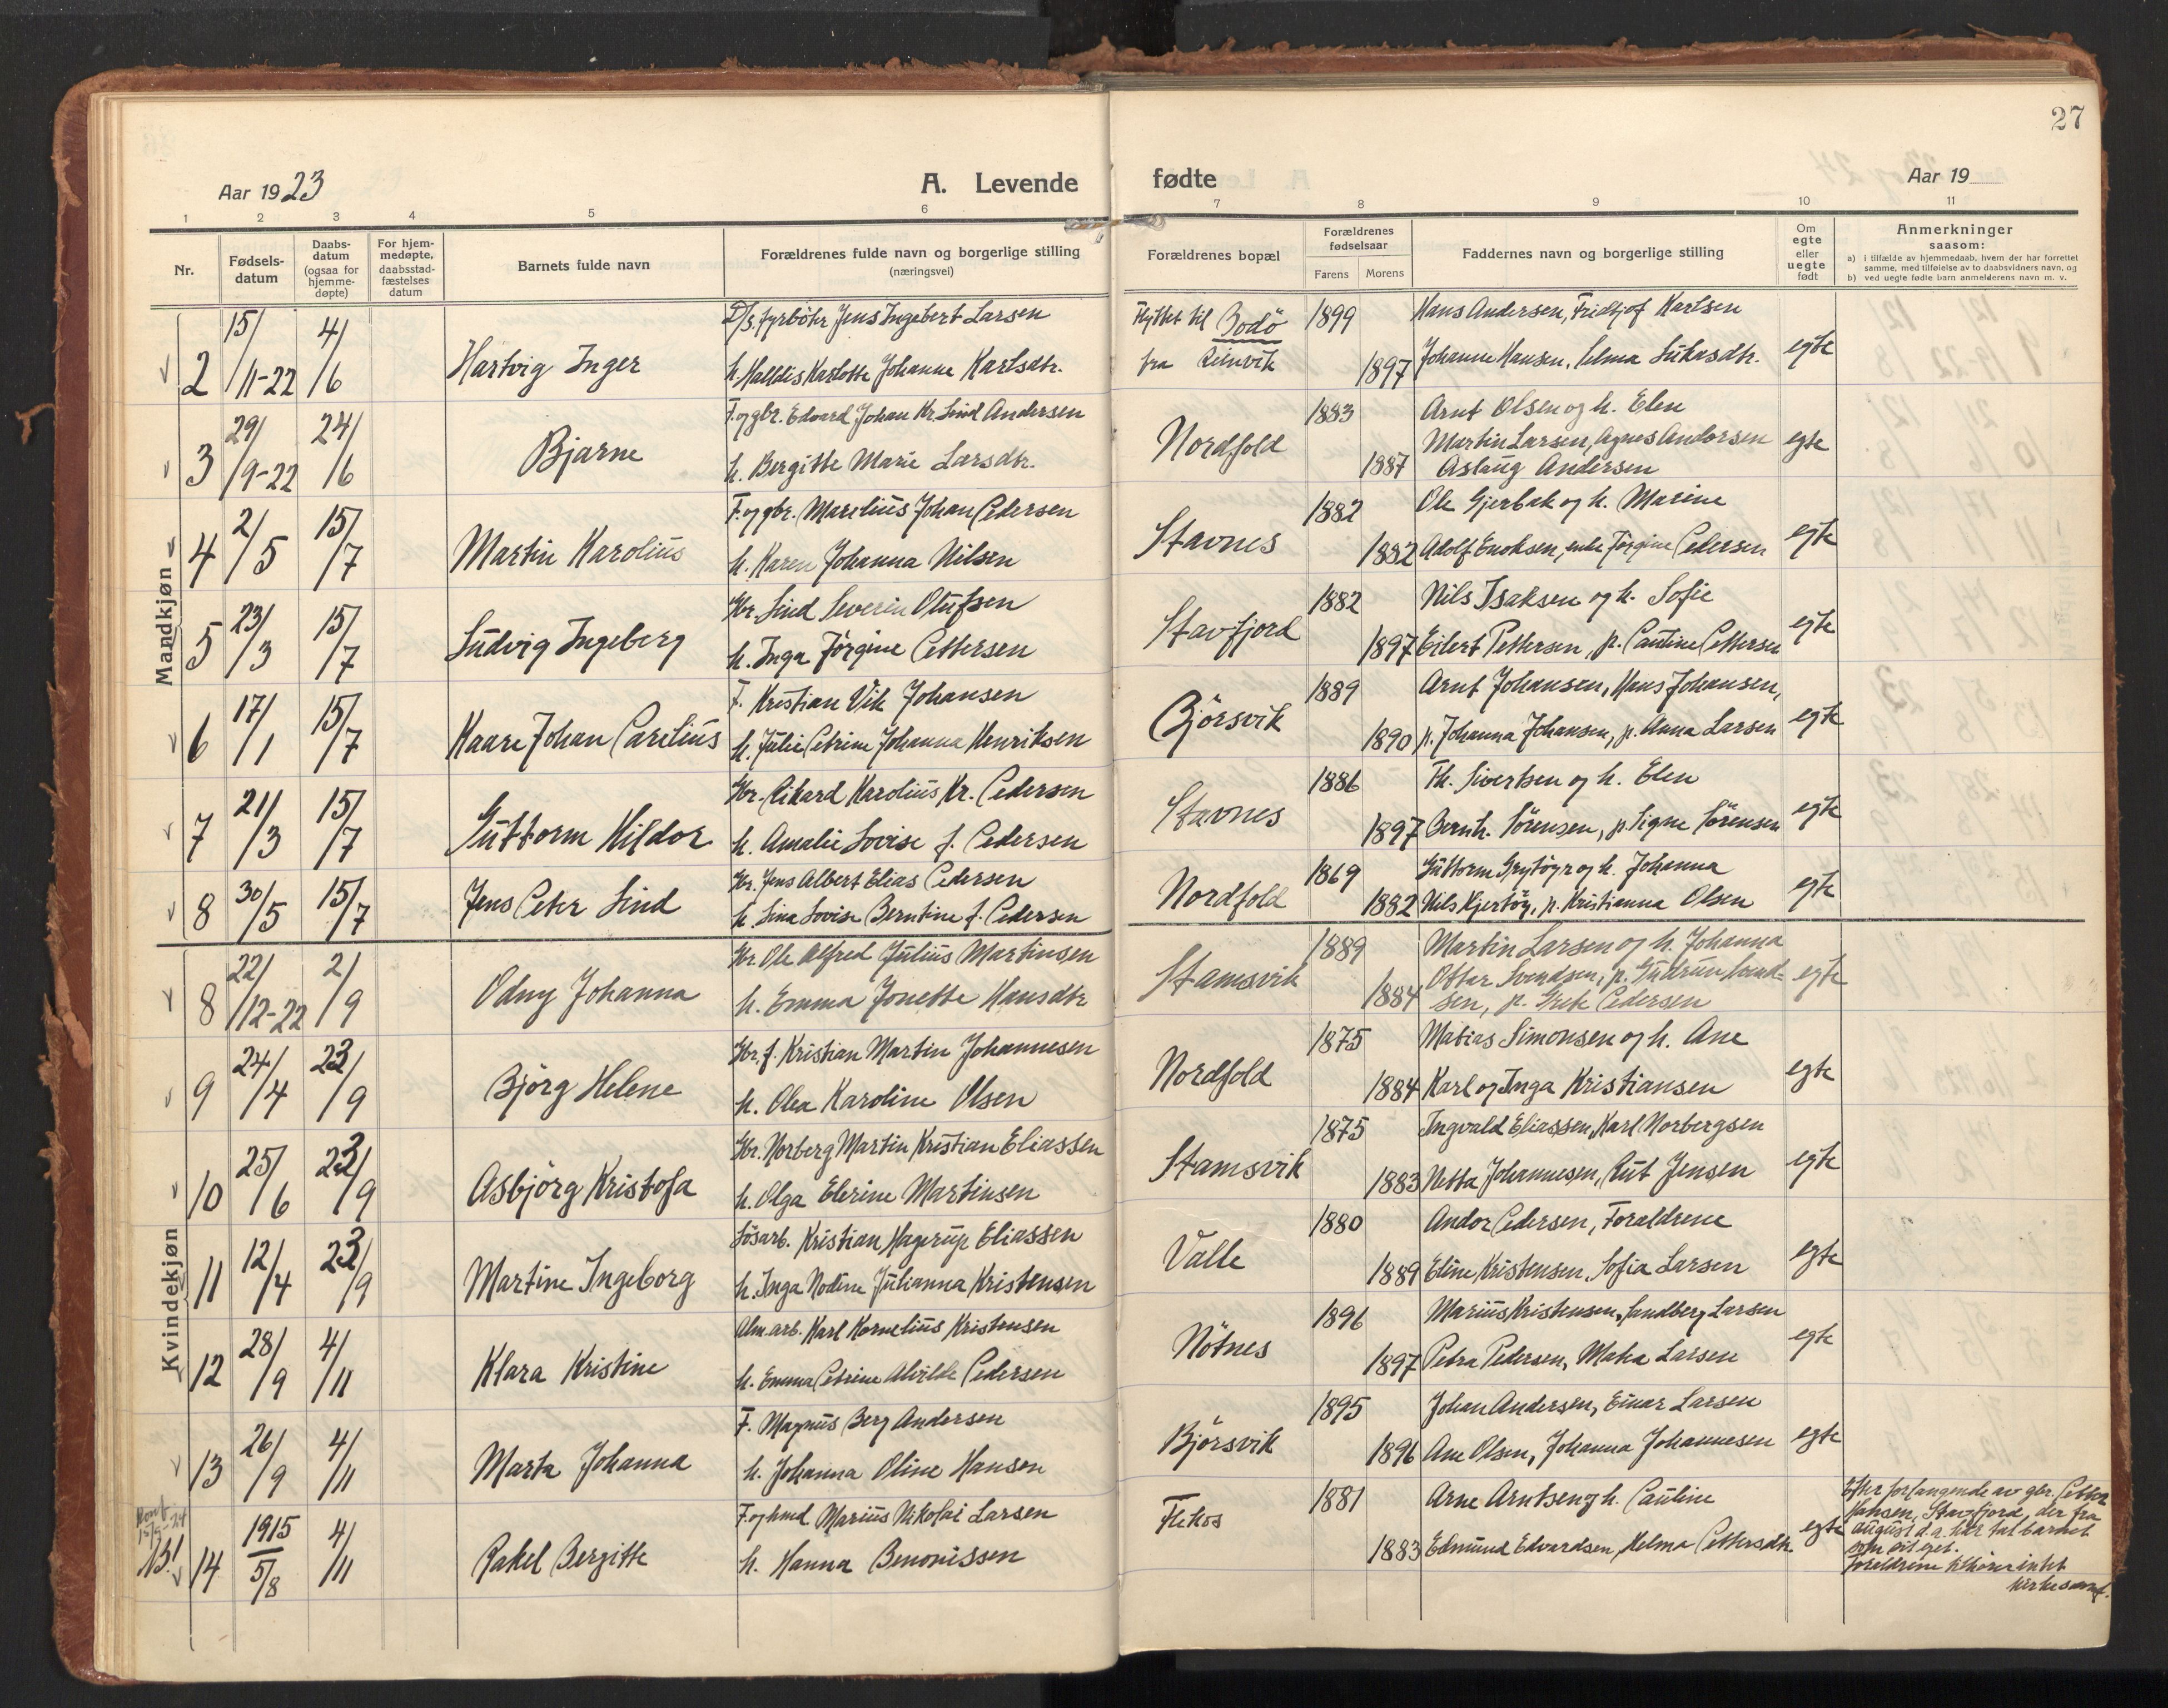 27
Aar 1923
A. Levende
fødte
Aar 19
1 2 3 4 5 6 7 8 9 10 11
Nr.
Fødsels-datum
Daabs-datum (ogsaa for hjemme-døpte)
For hjem-medøpte, daabsstad-fæstelses datum
Barnets fulde navn
Forældrenes fulde navn og borgerlige stilling (næringsvei)
Forældrenes bopæl
Forældrenes fødselsaar
Farens Morens
Faddernes navn og borgerlige stilling
Om egte eller uegte født
Anmerkninger saasom:
a) i tilfælde av hjemmedaab, hvem der har forrettet samme, med tilføielse av to daabsvidners navn, og
b) ved uegte fødte barn anmelderens navn m. v.
Mandkjøn
2 15/11-22 4/6 Hartvig Inger
D/S. fyrbøter Jens Ingebert Larsen
h. Halldis Karlotte Johanne Karlsdtr.
Flyttet til Bodö
fra Leinvik
1899 1897
Hans Andersen, Fridtjof Karlsen
Johanne Hansen, Selma Lukasdtr.
egte
3 29/9-22 24/6 Bjarne
F. og gbr. Edvard Johan Kr. Lind Andersen
h. Bergitte Marie Larsdtr.
Nordfold
1883 1887
Arnt Olsen og h. Elen
Martin Larsen, Agnes Andersen
Aslaug Andersen
egte
4 2/5 15/7 Martin Karolius
F. og gbr. Marelius Johan Pedersen
h. Karen Johanna Nilsen
Stavnes
1882 1882
Ole Gjerbak og h. Marine
Adolf Enoksen, enke Jørgine Pedersen
egte
5 23/3 15/7 Ludvig Ingeberg
Gbr. Lind Severin Olufsen
h. Inga Jørgine Pettersen
Stavfjord
1882 1897
Nils Isaksen og h. Sofie
Eilert Pettersen, p. Pauline Pettersen
egte
6 17/1 15/7 Kaare Johan Parelius
F. Kristian Vik Johansen
h. Julie Petrine Johanna Henriksen
Bjørsvik
1889 1890
Arnt Johansen, Hans Johansen,
p. Johanna Johansen, p. Anna Larsen
egte
7 21/3 15/7 Guttorm Hildor
Gbr. Rikard Karolius Kr. Pedersen
h. Amalie Lovise f. Pedersen
Stavnes
1886 1897
Th. Sivertsen og h. Elen
Bernh. Sörensen, p. Signe Sörensen
egte
8 30/5 15/7 Jens Peter Lind
Gbr. Jens Albert Elias Pedersen
h. Lina Lovise Berntine f. Pedersen
Nordfold
1869 1882
Guttorm Grytöyr og h. Johanna
Nils Kjertöy, p. Kristianna Olsen
egte
Kvindekjøn
8 22/12-22 2/9 Odny Johanna
Gbr. Ole Alfred Julius Martinsen
h. Emma Jonette Hansdtr
Stamsvik
1889 1884
Martin Larsen og h. Johanna
Ottar Svendsen, p. Gudrun Svend-
sen, p. Grete Pedersen
egte
9 24/4 23/9 Björg Helene
Gbr. f. Kristian Martin Johannesen
h. Olea Karoline Olsen
Nordfold
1875 1884
Matias Simonsen og h. Ane
Karl og Inga Kristiansen
egte
10 25/6 23/9 Asbjörg Kristofa
Gbr. Norberg Martin Kristian Eliassen
h. Olga Elerine Martinsen
Stamsvik
1875 1883
Ingvald Eliassen, Karl Norbergsen
Netta Johannesen, Rut Jensen
egte
11 12/4 23/9 Martine Ingeborg
Løsarb. Kristian Hagerup Eliassen
h. Inga Nodine Julianna Kristensen
Valle
1880 1889
Andor Pedersen, Forældrene
Eline Kristensen, Sofia Larsen
egte
12 28/9 4/11 Klara Kristine
Alm. arb. Karl Kornelius Kristensen
h. Emma Petrine Alvilde Pedersen
Nötnes
1896 1897
Marius Kristensen, Sandberg Larsen
Petra Pedersen, Maha Larsen
egte
13 26/9 4/11 Marta Johanna
F. Magnus Berg Andersen
h. Johanna Oline Hansen
Bjørsvik
1895 1896
Johan Andersen, Einar Larsen
Ane Olsen, Johanna Johannesen
egte
15/9-24
NB!
14 1915 5/8 4/11 Rakel Bergitte
F. og hmd Marius Nikolai Larsen
h. Hanna Benonissen
Flekos
1881 1883
Arne Arntsen og h. Pauline
Edmund Edvardsen, Helma Pettersdtr.
egte
Efter forlangende av gbr. Petter
Hansen, Stavfjord, der fra
august d.a. har tat barnet
som sit eget.
Forældrene tilhører intet
kirkesamf.